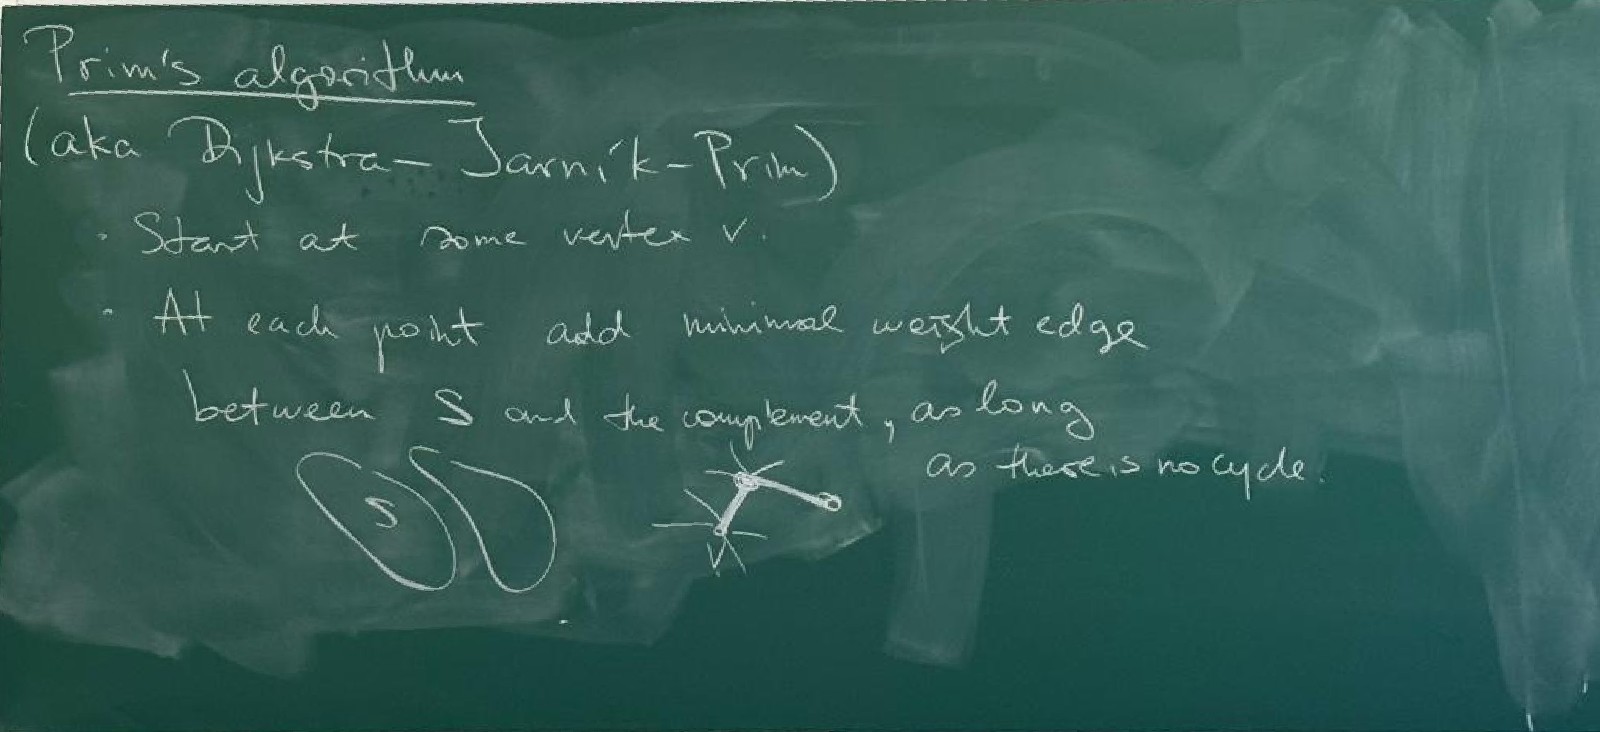 Prim's algorithm
(aka Dijkstra-Jarník-Prim)
· Start at some vertex v.
· At each point add minimal weight edge
between S and the complement, as long
as there is no cycle.
S
v